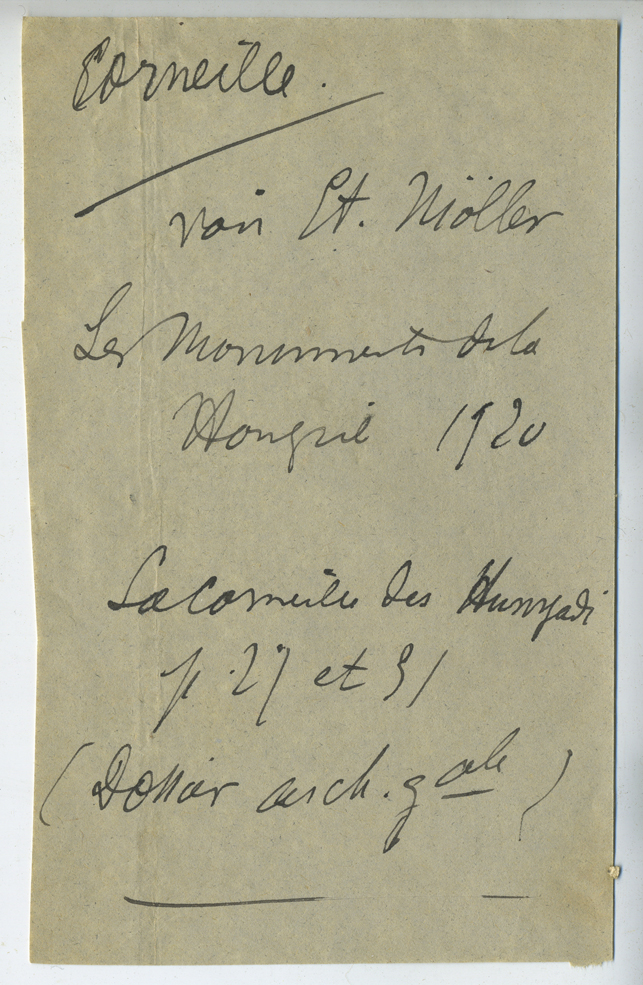 Corneille.
voir Et. Möller
Les Monuments de la
Hongrie 1920
La Corneille des Hunyadi
p. 27 et 31
(Dossier arch. gale)